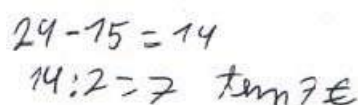 29-15=14
14:2=7 tem 7€